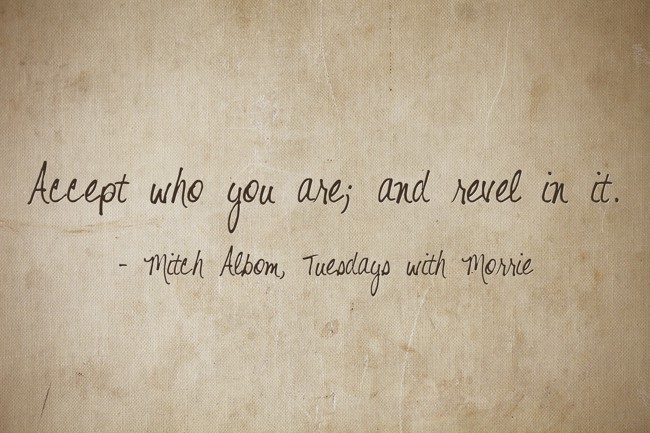 Accept who you are; and revel in it.
- Mitch Albom, Tuesdays with Morrie